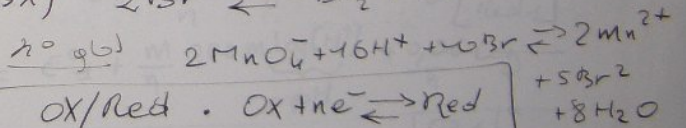 2MnO₄⁻ + 16H⁺ + 10Br ⇌ 2Mn²⁺
+ 5Br²
+ 8H₂O
Ox/Red . Ox + ne⁻ ⇌ Red